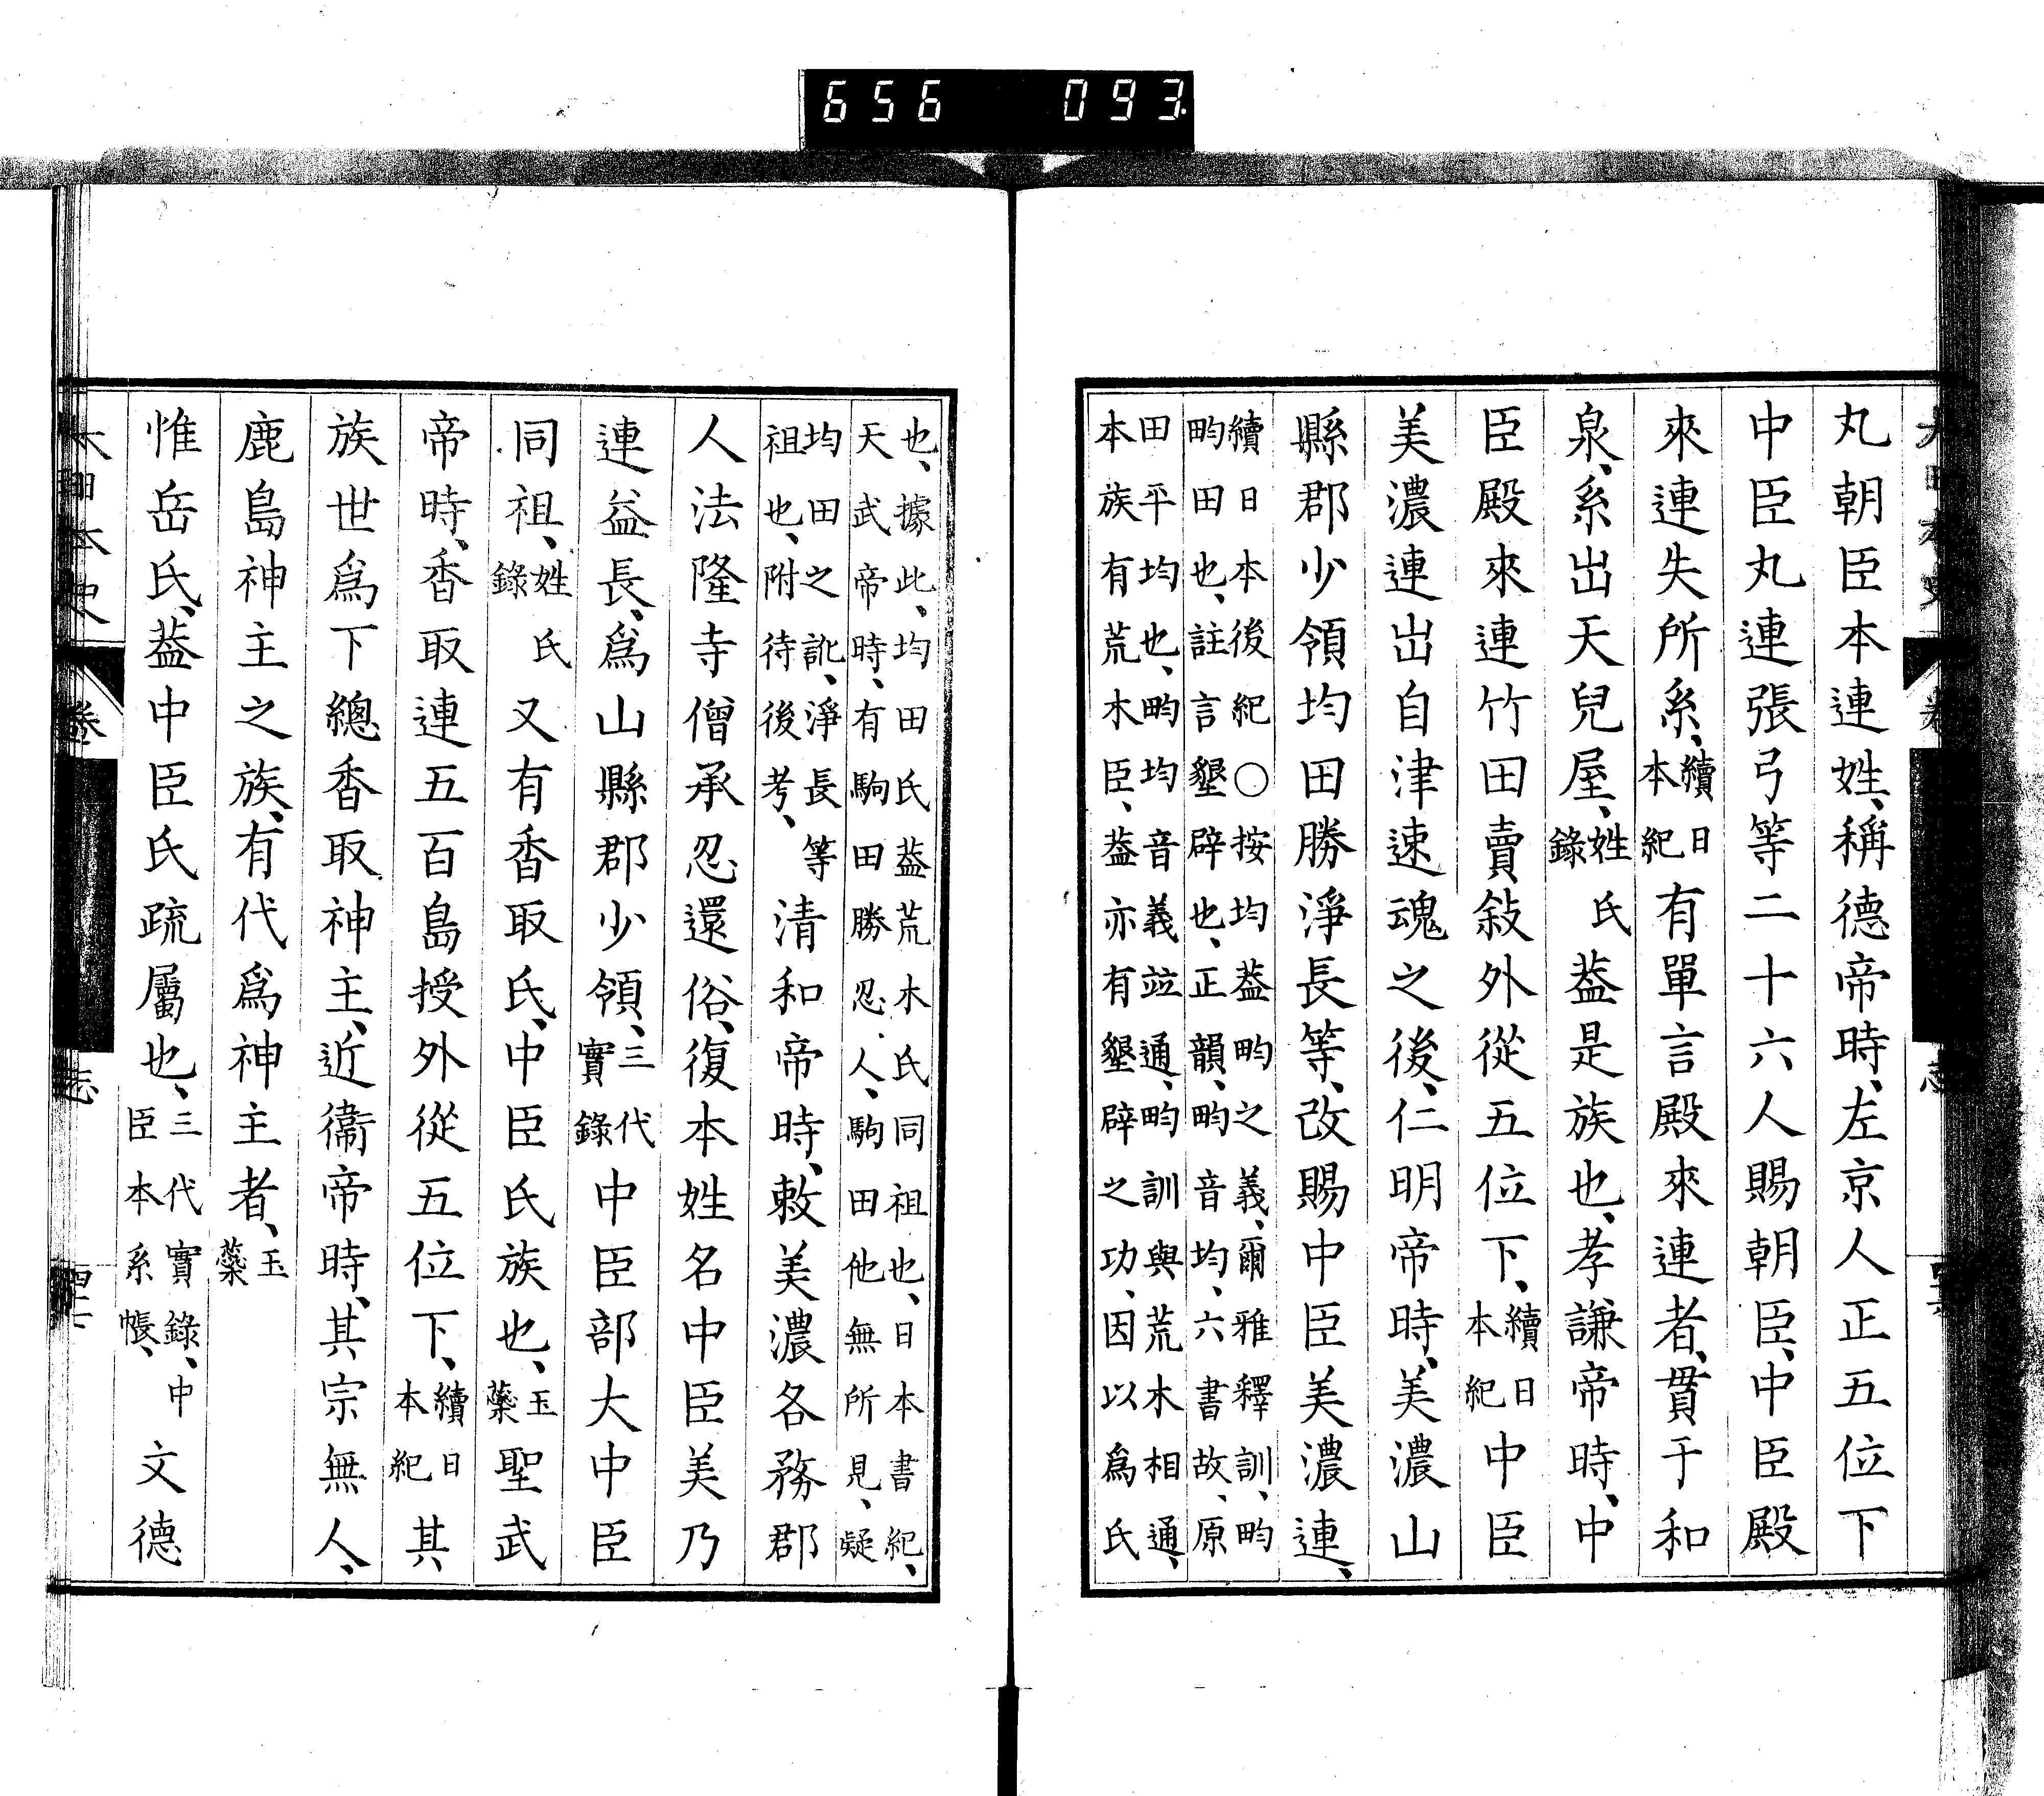 656 093
丸朝臣本連姓、稱德帝時、左京人正五位下
中臣丸連張弓等二十六人賜朝臣、中臣殿
來連失所系、續日本紀有單言殿來連者、貫于和
泉、系出天兒屋、姓氏錄蓋是族也、孝謙帝時、中
臣殿來連竹田賣敍外從五位下、續日本紀中臣
美濃連出自津速魂之後、仁明帝時、美濃山
縣郡少領均田勝淨長等、改賜中臣美濃連、
續日本後紀○按均蓋畇之義、爾雅釋訓、畇
畇田也、註言墾辟也、正韻、畇音均、六書故、原
田平均也、畇均音義竝通、畇訓與荒木相通、
本族有荒木臣、蓋亦有墾辟之功、因以爲氏
也、據此、均田氏蓋荒木氏同祖也、日本書紀、
天武帝時、有駒田勝忍人、駒田他無所見、疑
均田之訛、淨長等
祖也、附待後考、
清和帝時、敕美濃各務郡
人法隆寺僧承忍還俗、復本姓名中臣美乃
連益長、爲山縣郡少領、三代實錄中臣部大中臣
同祖、姓氏錄又有香取氏、中臣氏族也、玉蘂聖武
帝時、香取連五百島授外從五位下、續日本紀其
族世爲下總香取神主、近衞帝時、其宗無人、
鹿島神主之族、有代爲神主者、玉蘂
惟岳氏、蓋中臣氏疏屬也、三代實錄、中臣本系帳、文德
大日本史 卷 志